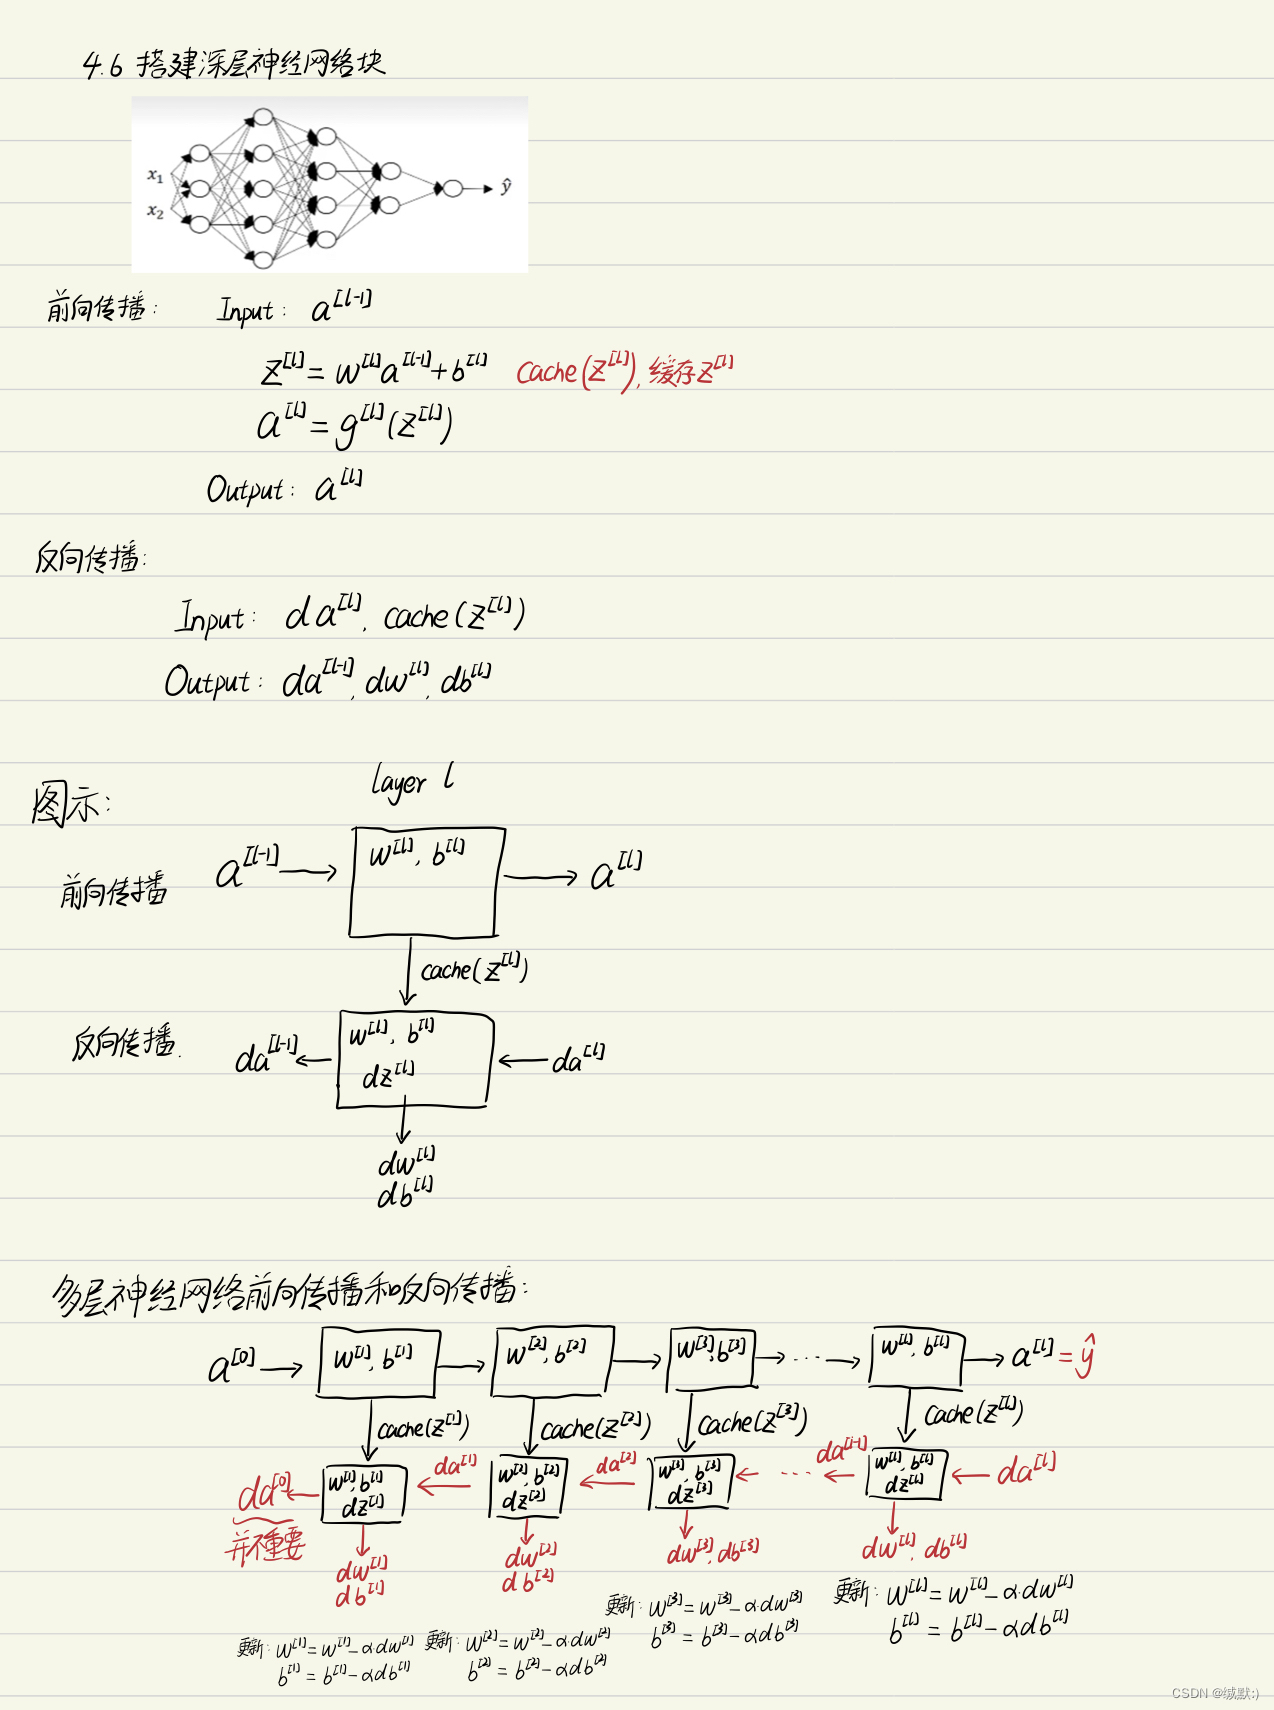 4.6 搭建深层神经网络块
x₁
x₂
ŷ
前向传播: Input: a^[l-1]
z^[l] = w^[l]a^[l-1]+b^[l] Cache(z^[l]), 缓存z^[l]
a^[l] = g^[l](z^[l])
Output: a^[l]
反向传播:
Input: da^[l], cache(z^[l])
Output: da^[l-1], dw^[l], db^[l]
图示:
layer l
w^[l], b^[l]
前向传播 a^[l-1] → → a^[l]
cache(z^[l])
反向传播. da^[l-1] ← w^[l], b^[l] ← da^[l]
dz^[l]
dw^[l]
db^[l]
多层神经网络前向传播和反向传播:
a^[0] → w^[1], b^[1] → w^[2], b^[2] → w^[3], b^[3] → ... → w^[l], b^[l] → a^[l] = ŷ
cache(z^[1]) cache(z^[2]) cache(z^[3]) cache(z^[l])
da^[0] ← w^[1], b^[1] ← da^[1] w^[2], b^[2] ← da^[2] w^[3], b^[3] ← ... ← da^[l-1] w^[l], b^[l] ← da^[l]
dz^[1] dz^[2] dz^[3] dz^[l]
并不重要
dw^[1] dw^[2] dw^[3], db^[3] dw^[l], db^[l]
db^[1] db^[2]
更新: w^[3] = w^[3] - α·dw^[3] 更新: w^[l] = w^[l] - α·dw^[l]
b^[3] = b^[3] - αdb^[3] b^[l] = b^[l] - αdb^[l]
更新: w^[1] = w^[1] - αdw^[1] 更新: w^[2] = w^[2] - α·dw^[2]
b^[1] = b^[1] - αdb^[1] b^[2] = b^[2] - αdb^[2]
CSDN @缄默:)